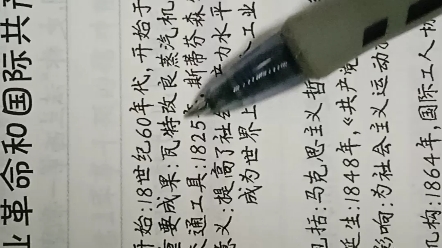 业革命和国际共产
开始:18世纪60年代,开始于
重要成果:瓦特改良蒸汽机
交通工具:1825 斯蒂芬森
意义:提高了社 产力水平
成为世界上 工业
包括:马克思主义哲
诞生:1848年,《共产党
影响:为社会主义运动
机构:1864年,国际工人协